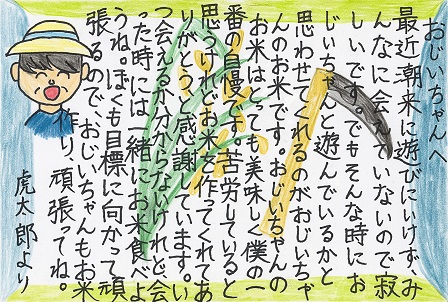 おじいちゃんへ
最近朝来に遊びにいけず、み
んなに会えていないので寂
しいです。でもそんな時にお
じいちゃんと遊んでいるかと
思わせてくれるのがおじいちゃ
んのお米です。おじいちゃんの
お米はとても美味しく僕の一
番の自慢です。苦労していると
思うけれどお米を作ってくれてあ
りがとうと感謝しています。い
つ会えるか分からないけれど、会
った時には一緒にお米食べよ
うね。ぼくも目標に向かって頑
張るので、おじいちゃんもお米
作り、頑張ってね。
虎太郎より